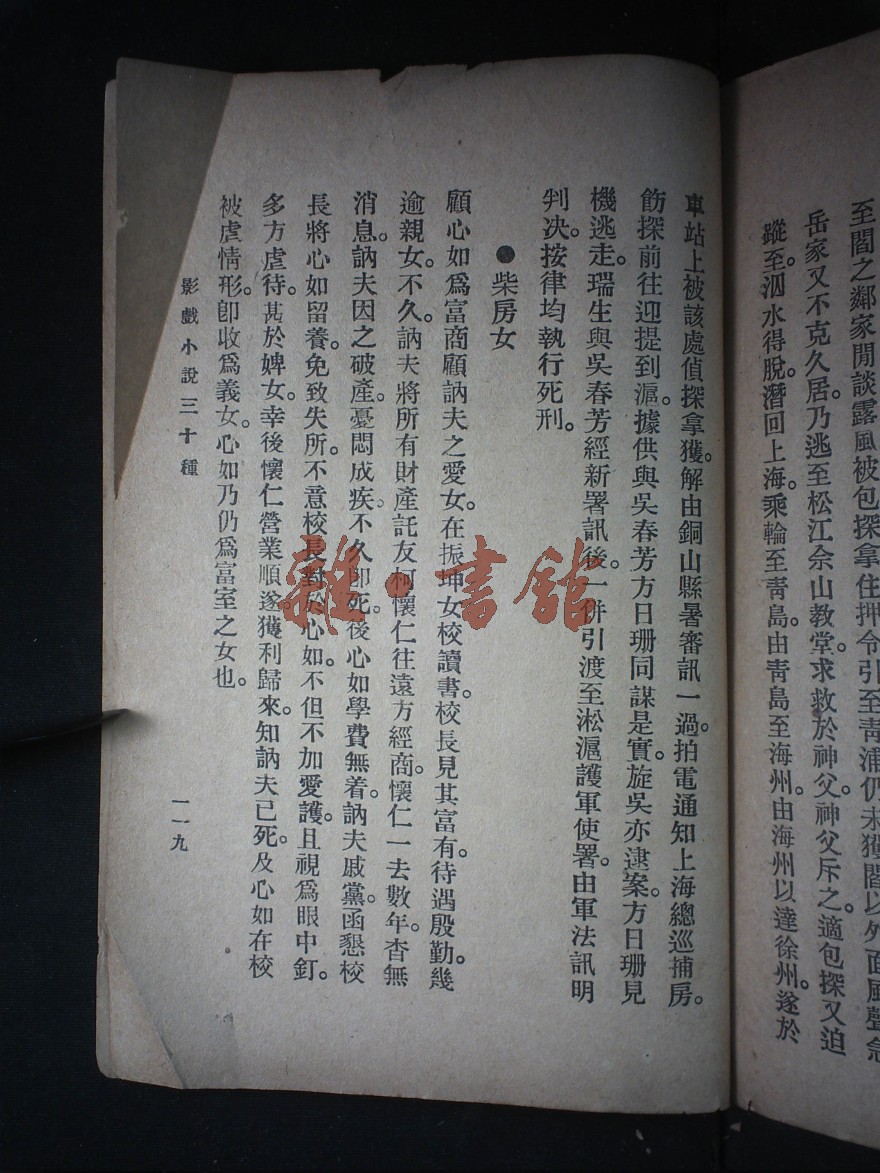 至閻之鄰家閒談露風被包探拿住押令引至青浦仍未獲閻以外面風聲急
岳家又不克久居。乃逃至松江佘山教堂。求救於神父。神父斥之。適包探又迫
蹤至。泅水得脫。潛回上海。乘輪至青島。由青島至海州。由海州以達徐州。遂於
車站上被該處偵探拿獲。解由銅山縣署審訊一過。拍電通知上海總巡捕房。
飭探前往迎提到滬。據供與吳春芳方日珊同謀是實。旋吳亦逮案。方日珊見
機逃走。瑞生與吳春芳經新署訊後。一併引渡至淞滬護軍使署。由軍法訊明
判决。按律均執行死刑。
●柴房女
顧心如爲富商顧訥夫之愛女。在振坤女校讀書。校長見其富有。待遇殷勤。幾
逾親女。不久。訥夫將所有財產託友柯懷仁往遠方經商。懷仁一去數年。杳無
消息。訥夫因之破產。憂悶成疾。不久卽死。後心如學費無着。訥夫戚黨函懇校
長將心如留養。免致失所。不意校長對於心如。不但不加愛護。且視爲眼中釘。
多方虐待。甚於婢女。幸後懷仁營業順遂。獲利歸來。知訥夫已死。及心如在校
被虐情形。卽收爲義女。心如乃仍爲富室之女也。
影戲小說三十種
一一九
雜·書館